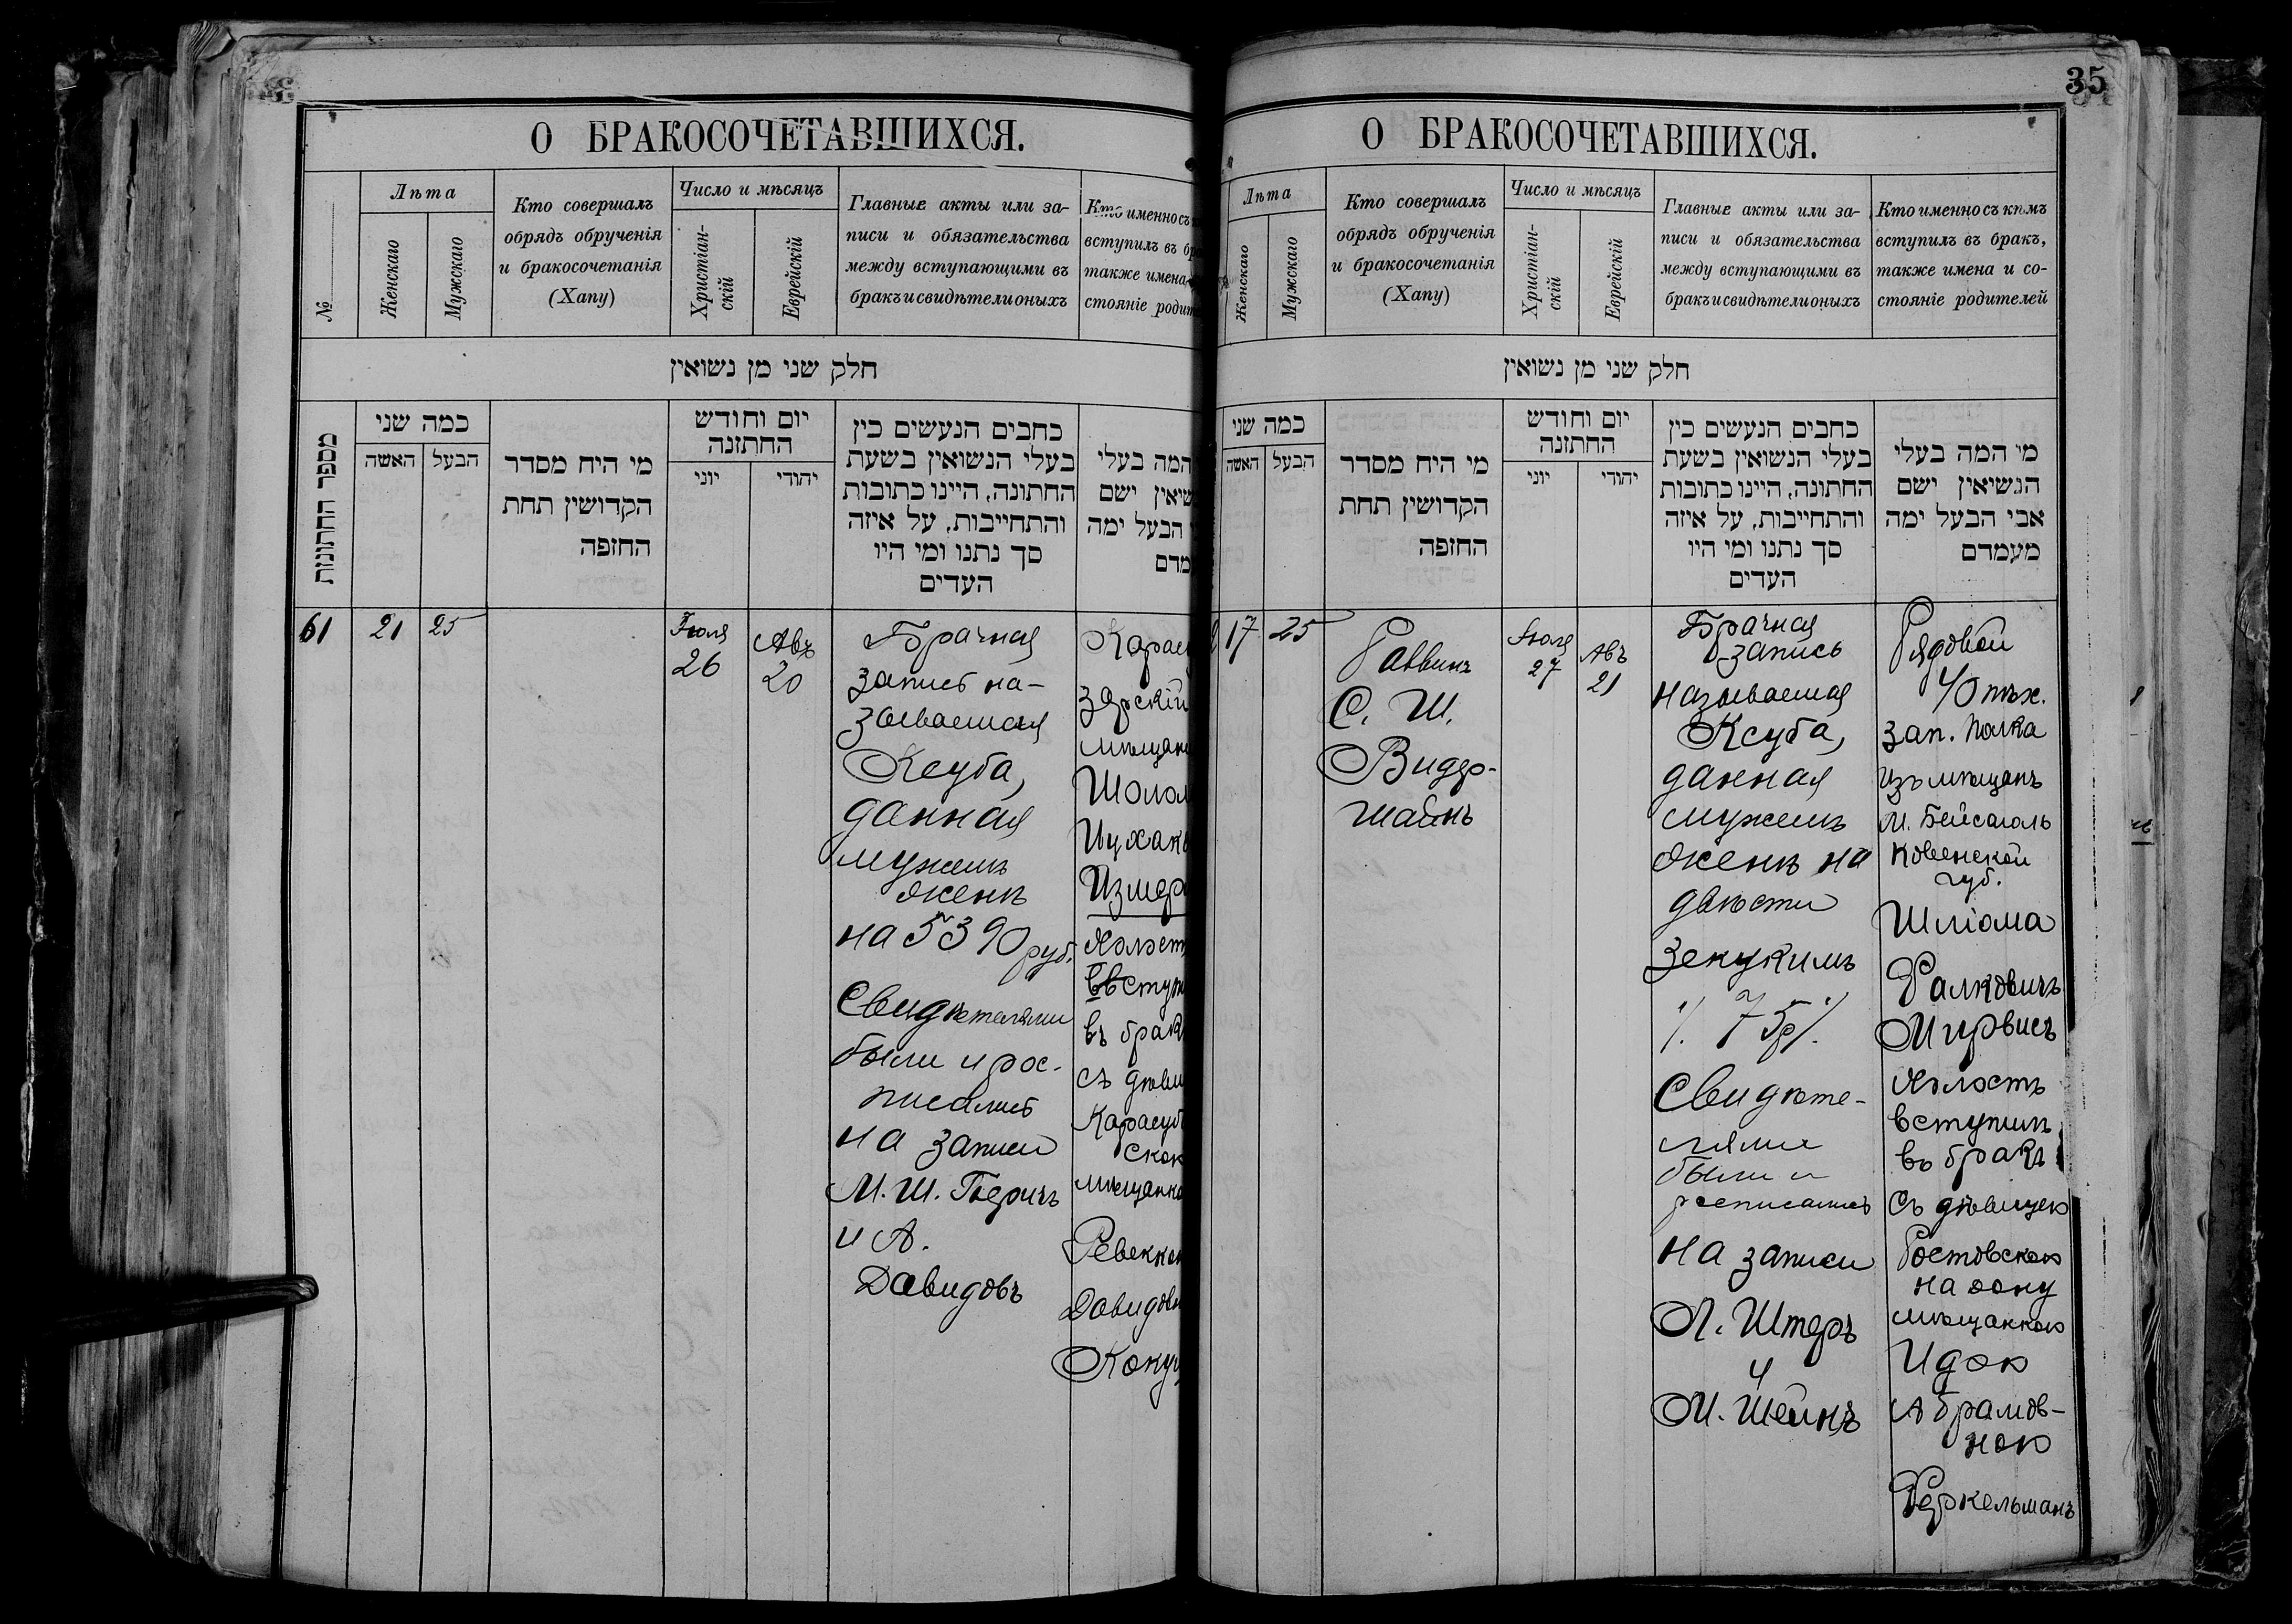 35
О БРАКОСОЧЕТАВШИХСЯ.
№
Лѣта
Женскаго
Мужскаго
Кто совершалъ
обрядъ обрученія
и бракосочетанія
(Хапу)
Число и мѣсяцъ
Христіан-
скій
Еврейскій
Главные акты или за-
писи и обязательства
между вступающими въ
бракъ и свидѣтели оныхъ
Кто именно съ
вступилъ въ бра
также имена
стояніе родит
חלק שני מן נשואין
מספר החתונות
כמה שני
האשה
הבעל
מי היח מסדר
הקדושין תחת
החזפה
יום וחודש
החתזנה
יוני
יהודי
כחבים הנעשים כין
בעלי הנשואין בשעת
החתונה, היינו כתובות
והתחייבות, על איזה
סך נתנו ומי היו
העדים
המה בעלי
שיאין ישם
הבעל ימה
מדם
61
21
25
Іюля
26
Авъ
20
Брачная
запись на-
зываемая
Ксуба,
данная
мужемъ
женѣ
на 5390 руб.
Свидѣтелями
были и рос-
писались
на записи
М. Ш. Гѣричъ
и А.
Давидовъ
Карас
зярскій
мѣщан
Шолом
Ицхак
Измер
Холост
вступи
въ брак
съ дѣви
Карасуб
ской
мѣщанко
Ревекко
Давидовн
Коку
О БРАКОСОЧЕТАВШИХСЯ.
Лѣта
Женскаго
Мужскаго
Кто совершалъ
обрядъ обрученія
и бракосочетанія
(Хапу)
Число и мѣсяцъ
Христіан-
скій
Еврейскій
Главные акты или за-
писи и обязательства
между вступающими въ
бракъ и свидѣтели оныхъ
Кто именно съ кѣмъ
вступилъ въ бракъ,
также имена и со-
стояніе родителей
חלק שני מן נשואין
כמה שני
האשה
הבעל
מי היח מסדר
הקדושין תחת
החזפה
יום וחודש
החתזנה
יוני
יהודי
כחבים הנעשים כין
בעלי הנשואין בשעת
החתונה, היינו כתובות
והתחייבות, על איזה
סך נתנו ומי היו
העדים
מי המה בעלי
הנשיאין ישם
אבי הבעל ימה
מעמדם
17
25
Раввинъ
С. Ш.
Видер-
шайнъ
Іюля
27
Авъ
21
Брачная
запись
называемая
Ксуба,
данная
мужемъ
женѣ на
двѣсти
зекукимъ
/. 75р /.
Свидѣте-
лями
были и
росписались
на записи
Л. Штеръ
и
М. Шейнъ
Рядовой
40 пѣх.
зап. полка
изъ мѣщанъ
М. Бейсаголь
Ковенской
губ.
Шліома
Фалковичъ
Мирвисъ
Холостъ
вступилъ
въ бракъ
съ дѣвицею
Ростовскою
на дону
мѣщанкою
Идою
Абрамов-
ною
Феркельманъ